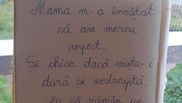 Mama m-a învățat
să am mereu
respect...
Și chiar dacă viața-i
dură și nedreaptă,
eu să rămân un